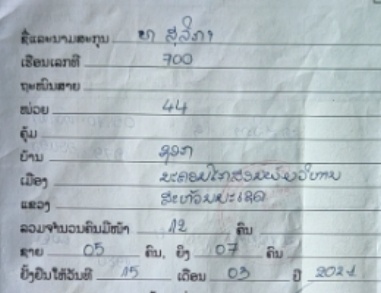 ຊື່ແລະນາມສະກຸນ ທ ສຸລິກາ
ເຮືອນເລກທີ 700
ຖະໜົນສາຍ
ໜ່ວຍ 44
ຄຸ້ມ
ບ້ານ
ເມືອງ ນະຄອນໄກສອນພົມວິຫານ
ແຂວງ ສະຫວັນນະເຂດ
ລວມຈຳນວນຄົນມີໜ້າ 12 ຄົນ
ຊາຍ 05 ຄົນ, ຍິງ 07 ຄົນ
ຢັ້ງຢືນໃຫ້ວັນທີ 15 ເດືອນ 03 ປີ 2021